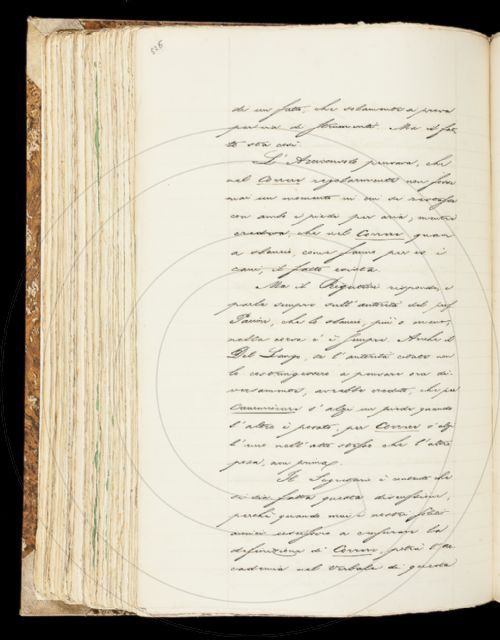 di un fatto, che solamente si prova
per via di strumenti. Ma il fat-
to sta così.
L'Arciconsolo pensava, che
nel Correre regolarmente non fosse
mai un momento in cui si restasse
con ambo i piedi per aria; mentre
credeva, che nel Correre quasi
a slancio, come fanno per es. i
cani, il fatto esista.
Ma il Rigutini risponde, e
parla sempre sull'autorità del prof.
Pacini, che lo slancio, più o meno,
nella corsa c'è sempre. Anche il
Del Lungo, se l'autorità citata non
lo costringesse a pensare ora di-
versamente, avrebbe creduto, che per
Camminare s'alzi un piede quando
l'altro è posato, per Correre s'alzi
l'uno nell'atto stesso che l'altro
posa, ma prima
Il Segretario è contento che
si sia fatta questa discussione,
perché quando mai i nostri
amici a censurare la
definizione di Correre, potrà l'Ac-
cademia nel verbale di questa